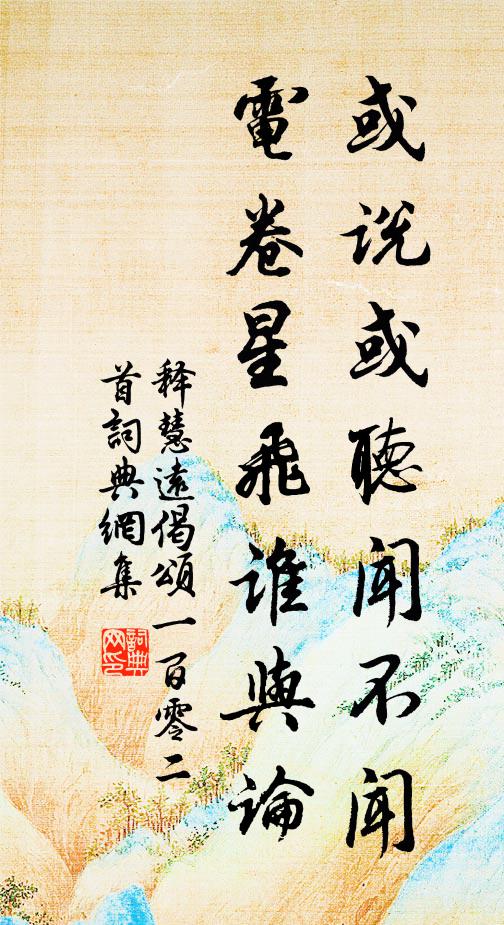 或説或聽聞不聞
電卷星飛誰與論
釋慧遠偈頌一百零二
首詞典網集
詞典
网印